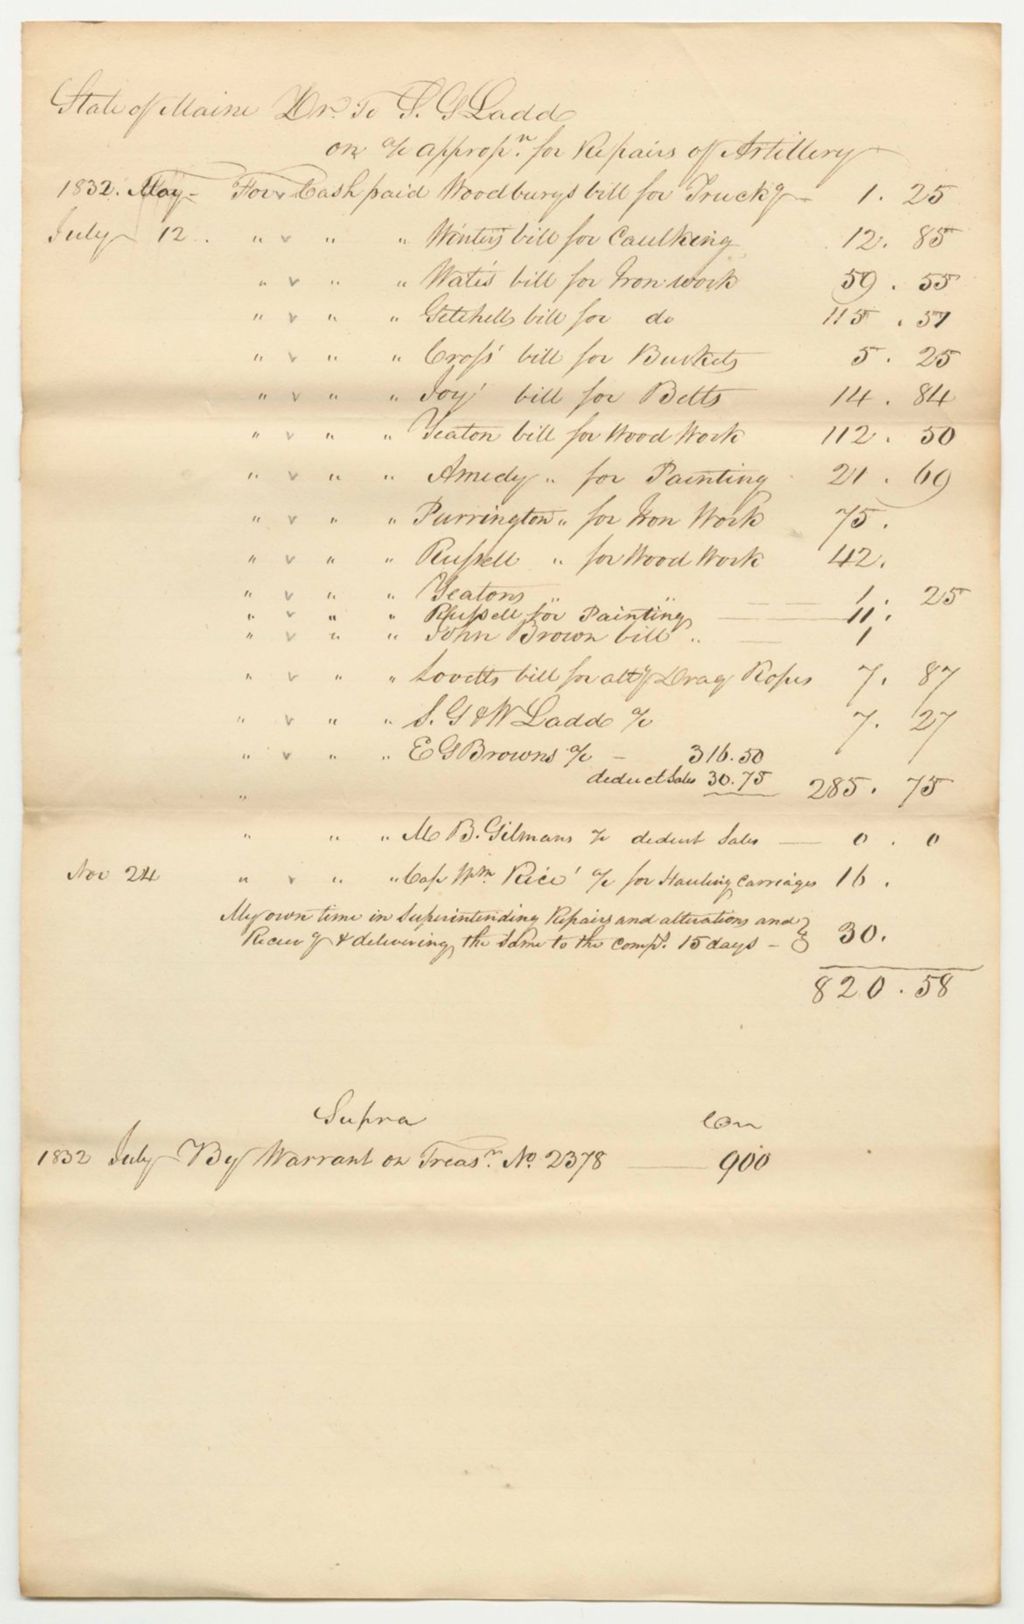 State of Maine Dr. To S. G Ladd
on a/c appropn. for Repairs of Artillery
1832. May - For Cash paid Woodburys bill for Truckg - 1. 25
July 12. " v " " Winters bill for Caulking 12. 85
" v " " Waites bill for Iron work 59. 55
" v " " Getchells bill for do 115. 57
" v " " Cross' bill for Buckets 5. 25
" v " " Joy' bill for Belts 14. 84
" v " " Yeaton bill for Wood Work 112. 50
" v " " Amedy " for Painting 21. 69
" v " " Purrington " for Iron Work 75.
" v " " Russell " for Wood Work 42.
" v " " Yeatons " " 1. 25
" v " " Russell for Painting 11.
" v " " John Brown bill " 1
" v " " Lovetts bill for altg Drag Ropes 7. 87
" v " " S. G & W Ladd a/c 7. 27
" v " " E G Browns a/c - 316.50
deduct Sales 30.75 285. 75
"
" " " M B. Gilmans a/c deduct Sales 0. 0
Nov 24 " v " " Cap Wm. Rice' a/c for Hauling Carriages 16.
My own time in Superintending Repairs and alterations and
Receivg & delivering the same to the Comps. 15 days - 30.
820.58
Supra Con
1832 July By Warrant on Treasr. No. 2378 900